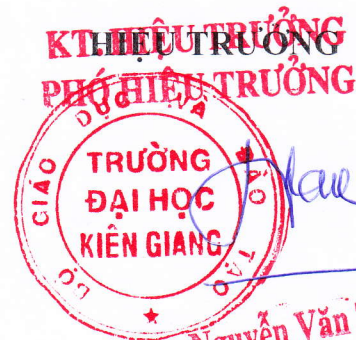 KT. HIỆU TRƯỞNG
HIỆU TRƯỞNG
PHÓ HIỆU TRƯỞNG
BỘ GIÁO DỤC VÀ ĐÀO TẠO
TRƯỜNG
ĐẠI HỌC
KIÊN GIANG
Nguyễn Văn